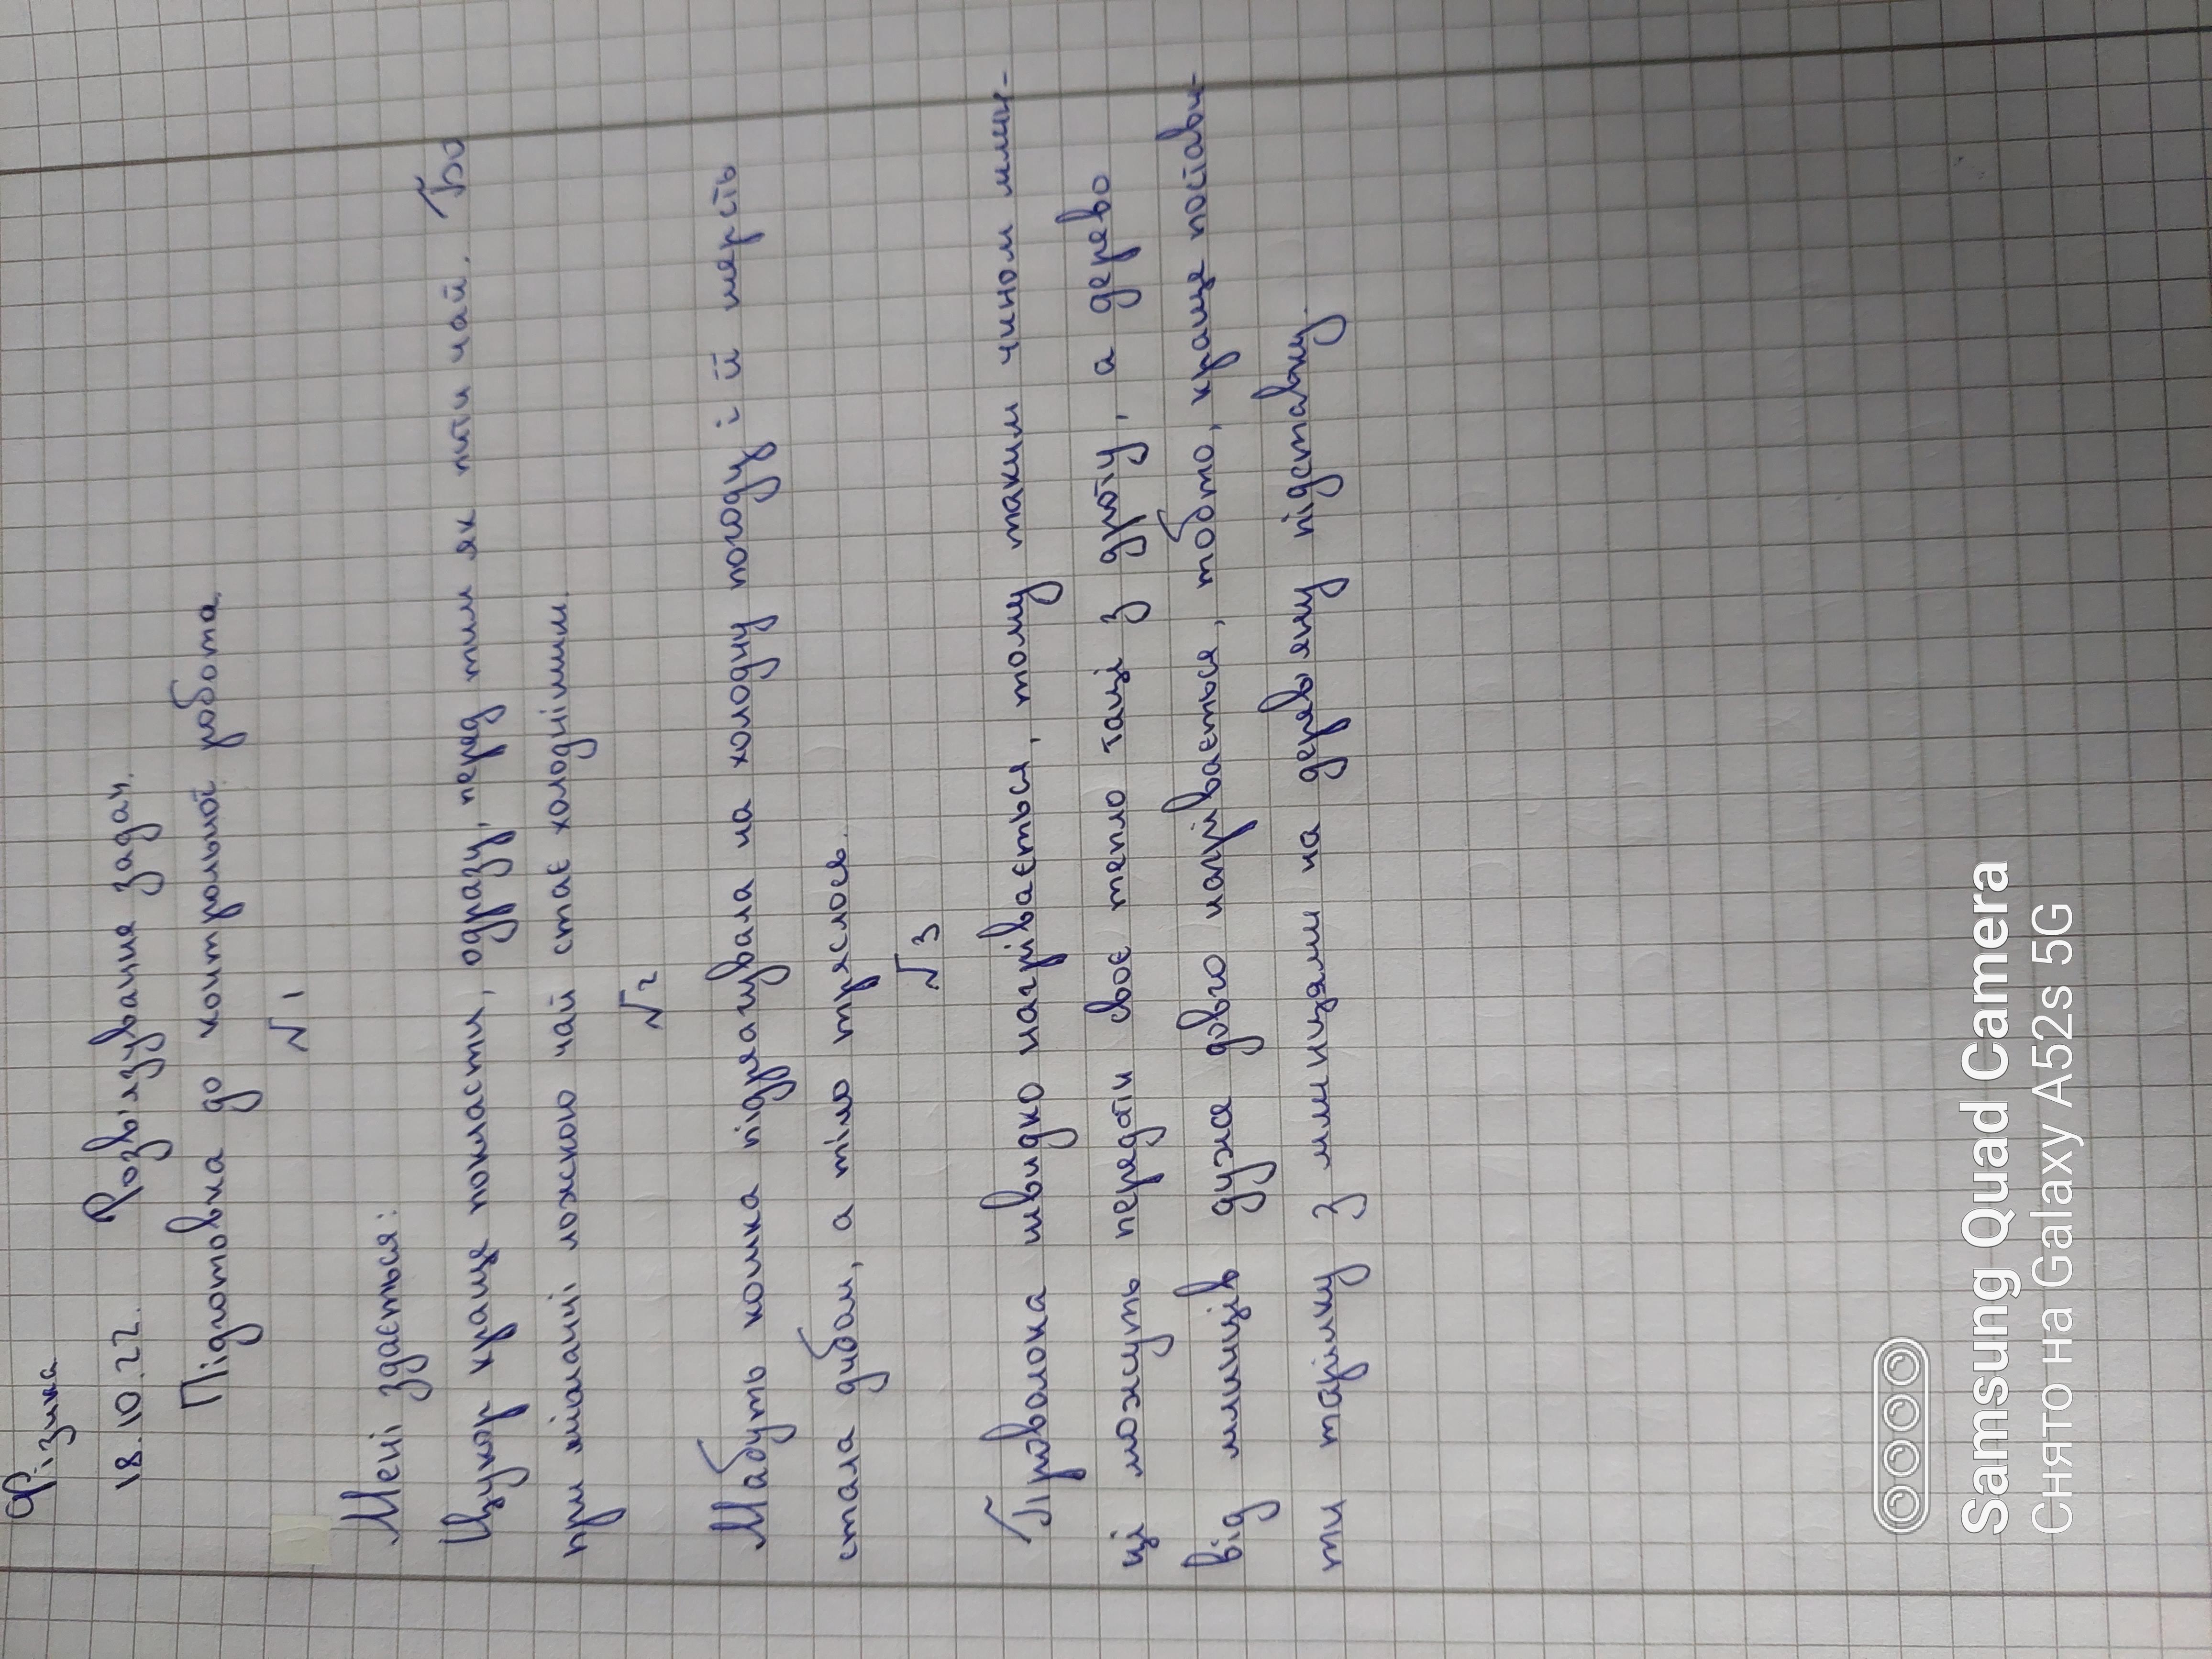 Фізика
18.10.22. Розв'язування задач.
Підготовка до контрольної робота.
№1
Мені здається:
Цукор краще покласти, одразу, перед тим як пити чай. Бо
при мішанні ложкою чай стає холоднішим.
№2
Мабуть кошка підреагувала на холодну погоду і її шерсть
стала дибом, а тіло тряслось.
№3
Проволока швидко нагрівається, тому таким чином млин-
ці можуть передати своє тепло таці з дроту, а дерево
від млинців дуже довго нагрівається, тобто, краще постави-
ти тарілку з млинцями на дерев'яну підставку.
Samsung Quad Camera
Снято на Galaxy A52s 5G